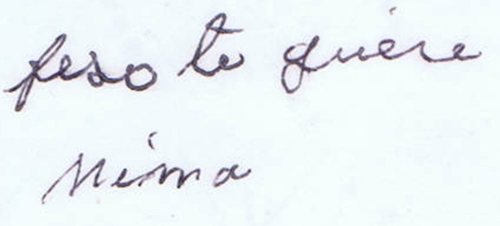 peso te quiere
mima